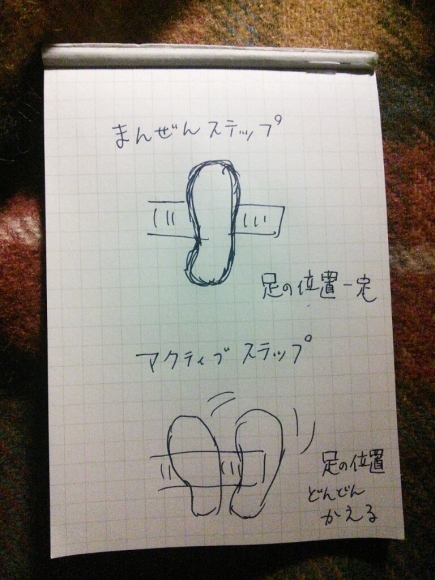 まんぜんステップ
足の位置一定
アクティブステップ
足の位置
どんどん
かえる